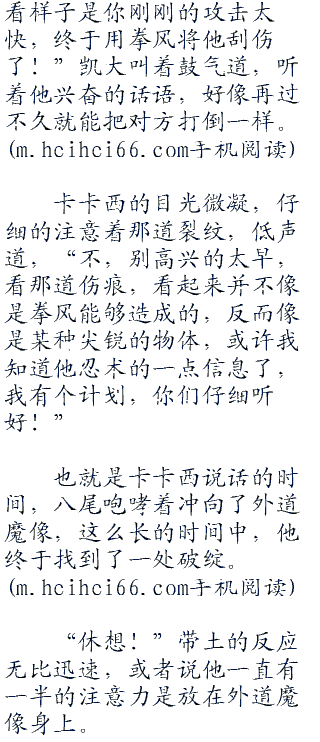 看样子是你刚刚的攻击太
快，终于用拳风将他刮伤
了！”凯大叫着鼓气道，听
着他兴奋的话语，好像再过
不久就能把对方打倒一样。
(m.hcihci66.com手机阅读)
卡卡西的目光微凝，仔
细的注意着那道裂纹，低声
道，“不，别高兴的太早，
看那道伤痕，看起来并不像
是拳风能够造成的，反而像
是某种尖锐的物体，或许我
知道他忍术的一点信息了，
我有个计划，你们仔细听
好！”
也就是卡卡西说话的时
间，八尾咆哮着冲向了外道
魔像，这么长的时间中，他
终于找到了一处破绽。
(m.hcihci66.com手机阅读)
“休想！”带土的反应
无比迅速，或者说他一直有
一半的注意力是放在外道魔
像身上。